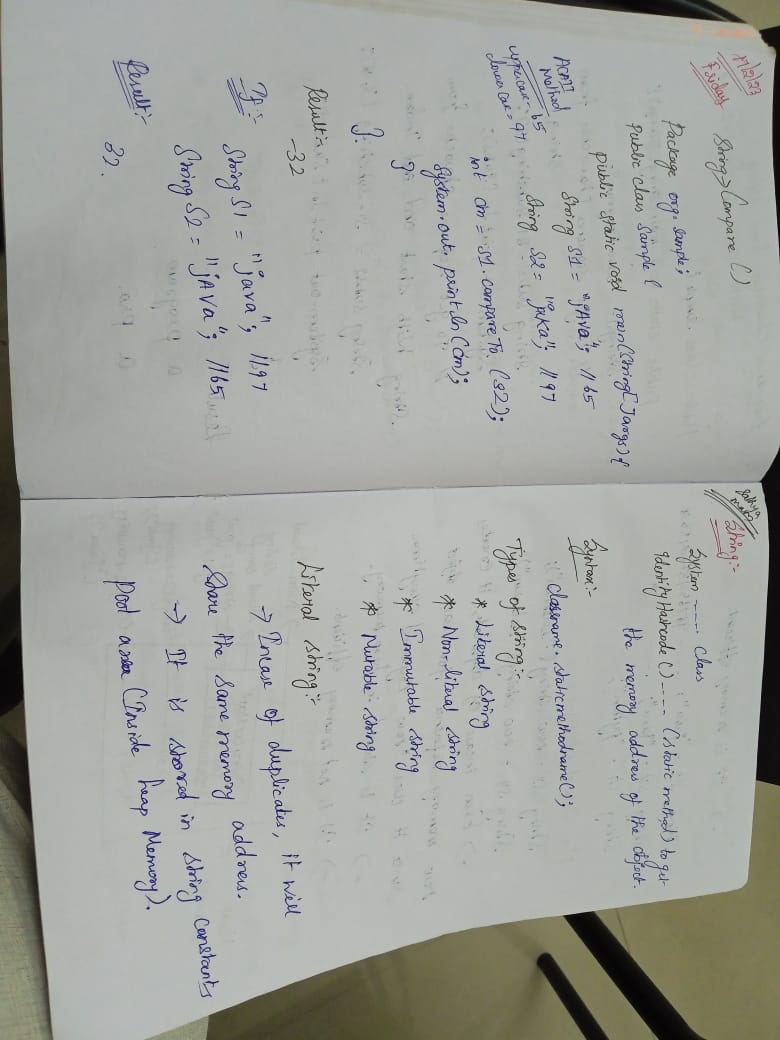 17/2/23
Friday
String → Compare ()
Package org. Sample;
Public class Sample {
public static void main(String[]args) {
String S1 = "jAva"; //65
String S2 = "java"; //97
ASCII
Method
uppercase - 65
Lower Case = 97
int cm = S1. compareTo (s2);
System.out. println (cm);
}
}.
Result:-
-32
If:-
String S1 = "java"; //97
String S2 = "jAVa"; //65
Result:-
32.
Sathya
String:-
System ---- Class
Identity Hashcode () ---- (static method) to get
the memory address of the object.
Syntax:-
Classname. staticmethodname();
Types of String:-
* Literal String
* Non-literal string
* Immutable string
* Mutable string
Literal string:-
→ Incase of duplicates, it will
Share the same memory address.
→ It is stored in string constants
Pool area (Inside heap Memory).